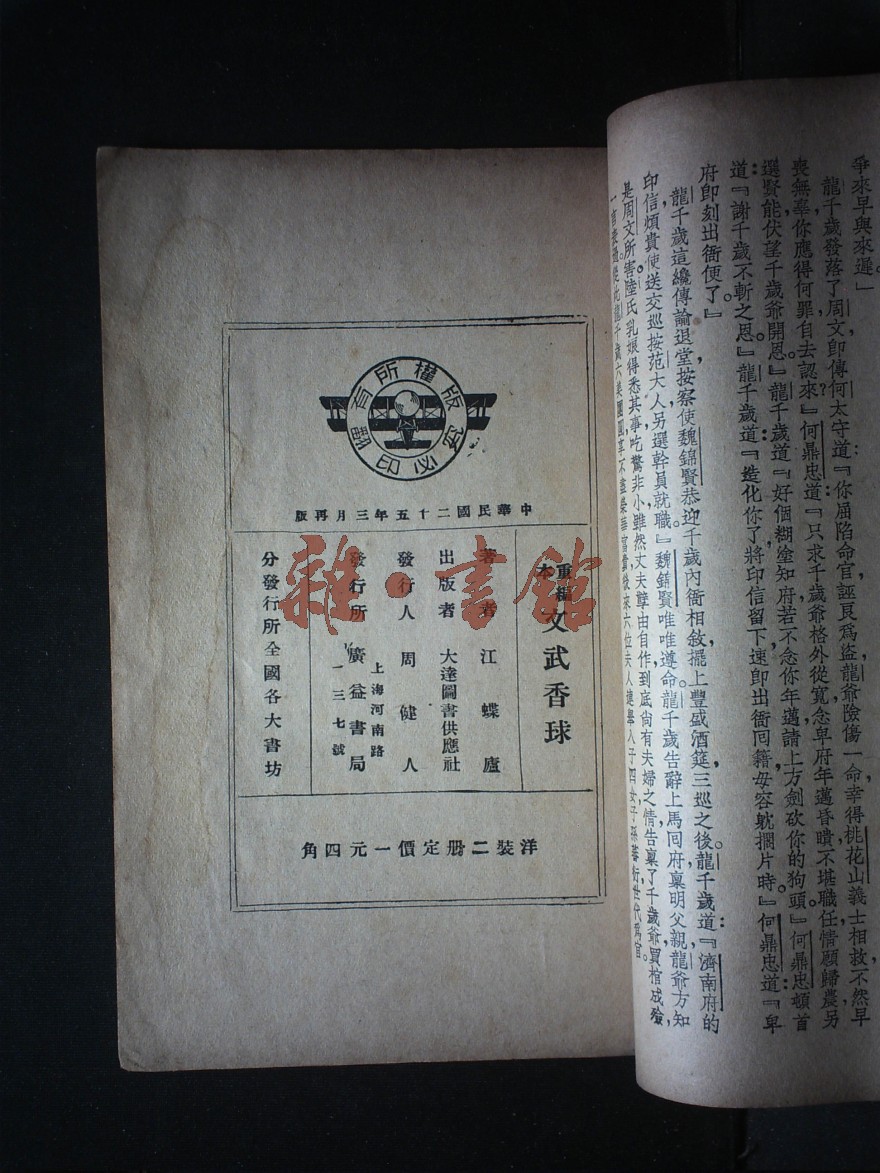 爭來早與來遲。」
龍千歲發落了周文卽傳何太守道：『你屈陷命官誣良爲盜龍爺險傷一命幸得桃花山義士相救不然早
喪無辜你應得何罪自去認來？』何鼎忠道：『只求千歲爺格外從寬念卑府年邁昏聵不堪職任情願歸農另
選賢能伏望千歲爺開恩。』龍千歲道：『好個糊塗知府若不念你年邁請上方劍砍你的狗頭。』何鼎忠頓首
道：『謝千歲不斬之恩。』龍千歲道：『造化你了將印信留下速卽出衙回籍毋容躭擱片時。』何鼎忠道：『卑
府卽刻出衙便了。』
龍千歲這纔傳諭退堂按察使魏錦賢恭迎千歲內衙相敘擺上豐盛酒筵三巡之後龍千歲道：『濟南府的
印信煩貴使送交巡按范大人另選幹員就職。』魏錦賢唯唯遵命龍千歲告辭上馬回府稟明父親龍爺方知
是周文所害陸氏乳娘得悉其事吃驚非小雖然丈夫孽由自作到底尚有夫婦之情告稟了千歲爺買棺成殮，
一言表過。從此龍千歲六美團圓享不盡榮華富貴後來六位夫人連舉八子四女子孫蕃衍世代爲官。
版權所有
翻印必究
中華民國二十五年三月再版
重編本 文武香球
著者 江蝶廬
出版者 大達圖書供應社
發行人 周健人
發行所 廣益書局
上海河南路
一三七號
分發行所全國各大書坊
洋裝二册定價一元四角
雜·書館